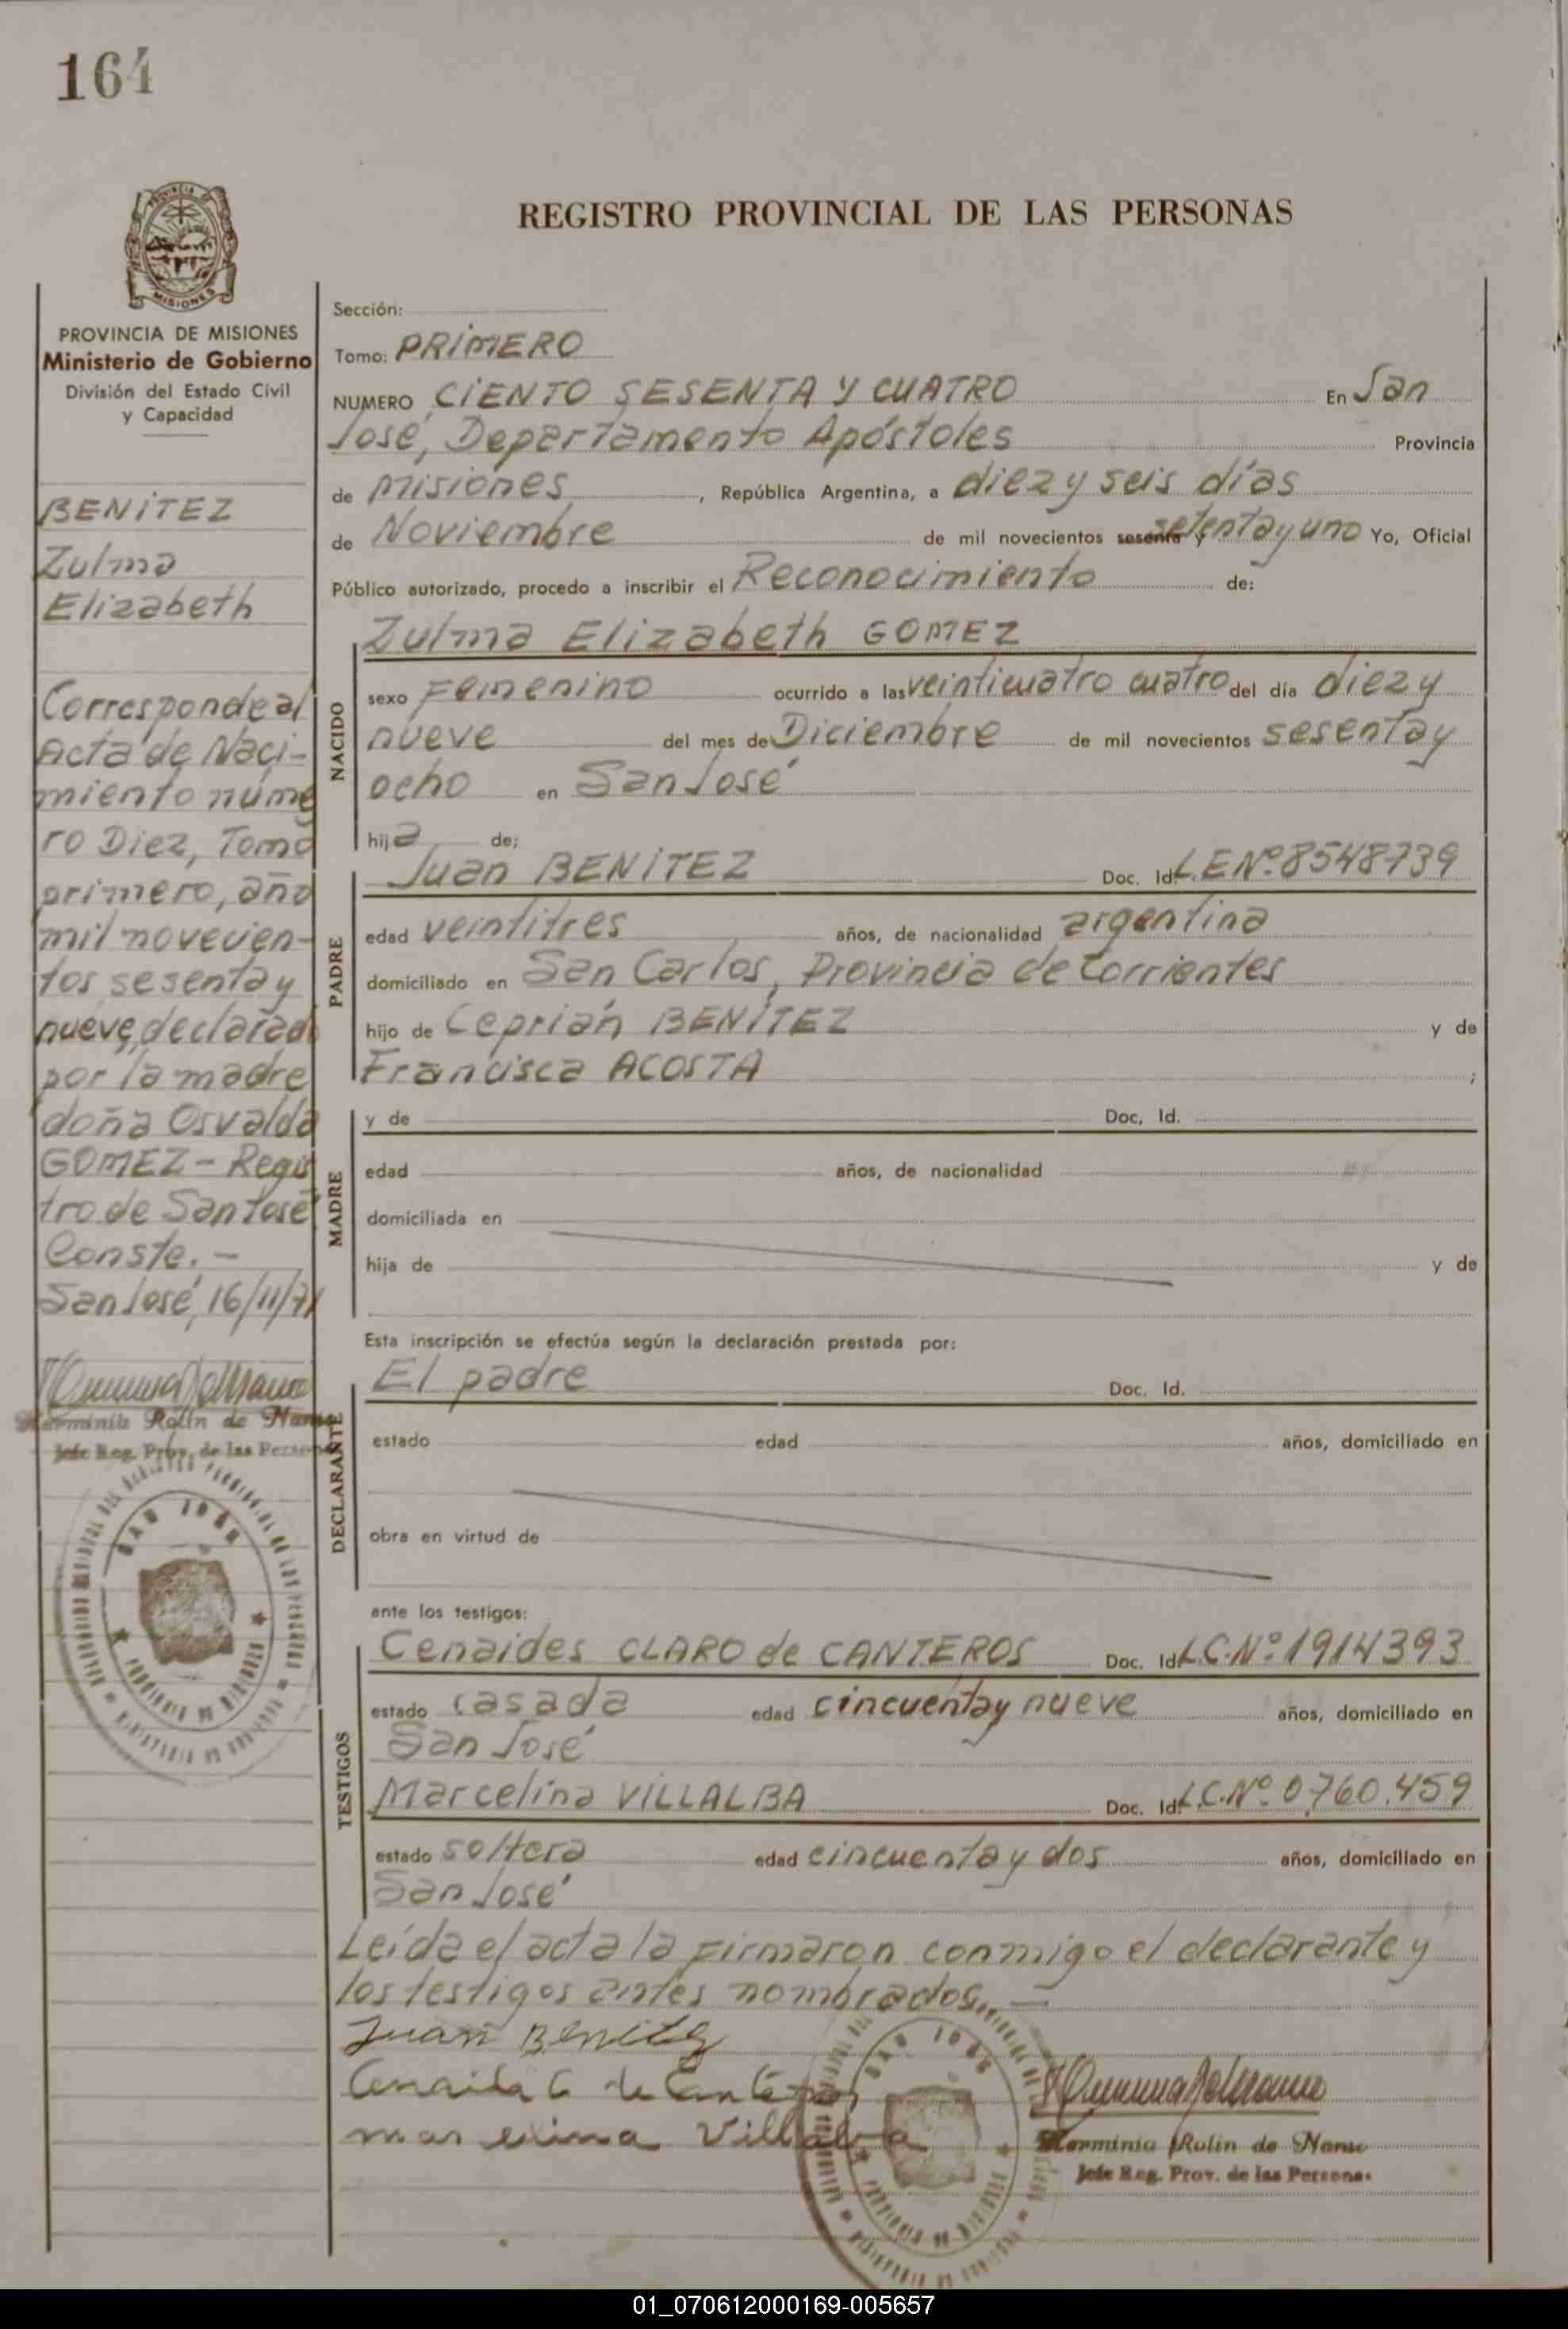 164
PROVINCIA
MISIONES
REGISTRO PROVINCIAL DE LAS PERSONAS
PROVINCIA DE MISIONES
Ministerio de Gobierno
División del Estado Civil
y Capacidad
BENITEZ
Zulma
Elizabeth
Corresponde al
Acta de Naci-
miento núme
ro Diez, Tomo
primero, año
mil novecien-
tos sesenta y
nueve, declarad
por la madre
doña Osvalda
GOMEZ - Regis
tro de San José
Conste. -
San José, 16/11/71
Herminia Rolin de Nanu
Jefe Reg. Prov. de las Persona
Sección:
Tomo: PRIMERO
NUMERO CIENTO SESENTA Y CUATRO En San
José, Departamento Apóstoles Provincia
de Misiones, República Argentina, a diez y seis días
de Noviembre de mil novecientos sesenta y setenta y uno Yo, Oficial
Público autorizado, procedo a inscribir el Reconocimiento de:
NACIDO
Zulma Elizabeth GOMEZ
sexo Femenino ocurrido a las veinticuatro cuatro del día diez y
nueve del mes de Diciembre de mil novecientos sesenta y
ocho en San José
hija de;
PADRE
Juan BENITEZ Doc. Id. L.E Nº 8548739
edad veintitres años, de nacionalidad argentina
domiciliado en San Carlos, Provincia de Corrientes
hijo de Ceprián BENÍTEZ y de
Francisca ACOSTA ;
MADRE
y de Doc, Id.
edad años, de nacionalidad
domiciliada en
hija de y de
Esta inscripción se efectúa según la declaración prestada por:
DECLARANTE
El padre Doc. Id.
estado edad años, domiciliado en
obra en virtud de
ante los testigos:
TESTIGOS
Cenaides CLARO de CANTEROS Doc. Id. L.C. Nº 1914393
estado casada edad cincuenta y nueve años, domiciliado en
San José
Marcelina VILLALBA Doc. Id. L.C. Nº 0760.459
estado soltera edad cincuenta y dos años, domiciliado en
San José
Leída el acta la firmaron conmigo el declarante y
los testigos antes nombrados.. -
Juan Benitez
Cenaida C de Canteros
marcelina Villalba
Herminia Rolin de Nanu
Jefe Reg. Prov. de las Personas
01_070612000169-005657